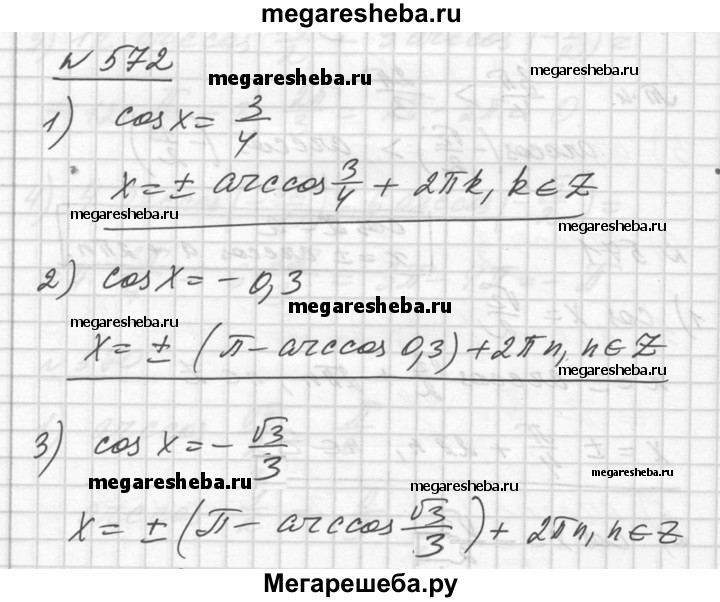 megaresheba.ru
№ 572
megaresheba.ru
megaresheba.ru
1) cos x = 3/4
x = ± arccos 3/4 + 2πk, k ∈ Z
megaresheba.ru
megaresheba.ru
2) cos x = - 0,3
megaresheba.ru
megaresheba.ru
x = ± (π - arccos 0,3) + 2πn, n ∈ Z
3) cos x = - √3/3
megaresheba.ru
megaresheba.ru
megaresheba.ru
x = ± (π - arccos √3/3) + 2πn, n ∈ Z
Мегарешеба.ру